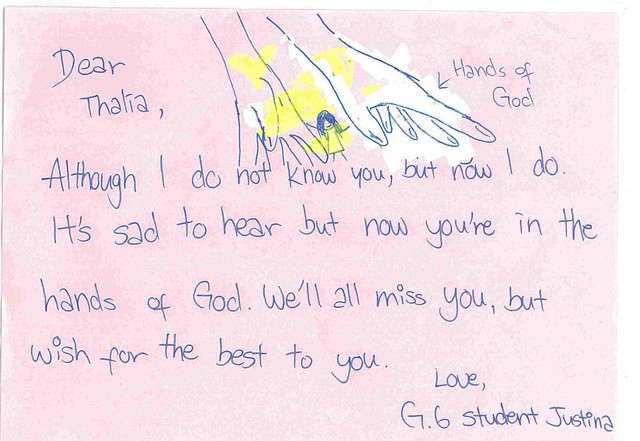 Dear
Thalia,
Hands of
God
Although I do not know you, but now I do.
It's sad to hear but now you're in the
hands of God. We'll all miss you, but
wish for the best to you.
Love,
G.6 student Justina